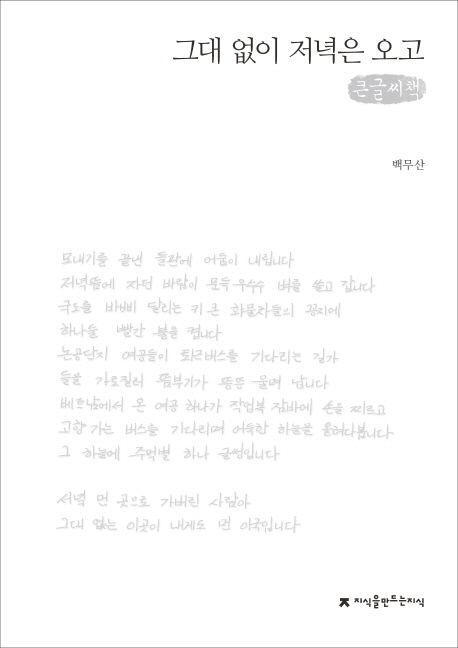 그대 없이 저녁은 오고
큰글씨책
백무산
모내기를 끝낸 들판에 어둠이 내립니다
저녁뜸에 자던 바람이 모두 우수수 벼를 쓸고 갑니다
국도를 바삐 달리는 키 큰 화물차들의 꽁지에
하나둘 빨간 불을 켭니다
논공단지 여공들이 퇴근버스를 기다리는 길가
들을 가로질러 뜸부기가 뜸뜸 울며 납니다
베트남에서 온 여공 하나가 작업복 잠바에 손을 찌르고
고향 가는 버스를 기다리며 어둑한 하늘을 올려다봅니다
그 하늘에 주먹별 하나 글썽입니다
서녘 먼 곳으로 가버린 사람아
그대 없는 이곳이 내게도 먼 이국입니다
지식을만드는지식